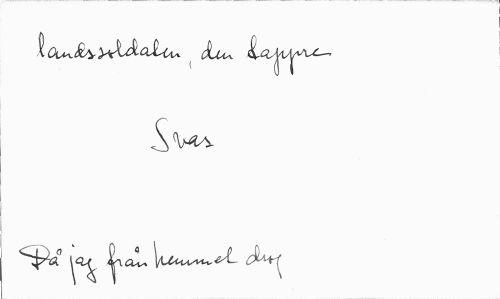 landssoldaten, den tappre
Svas
Då jag från hemmet drog